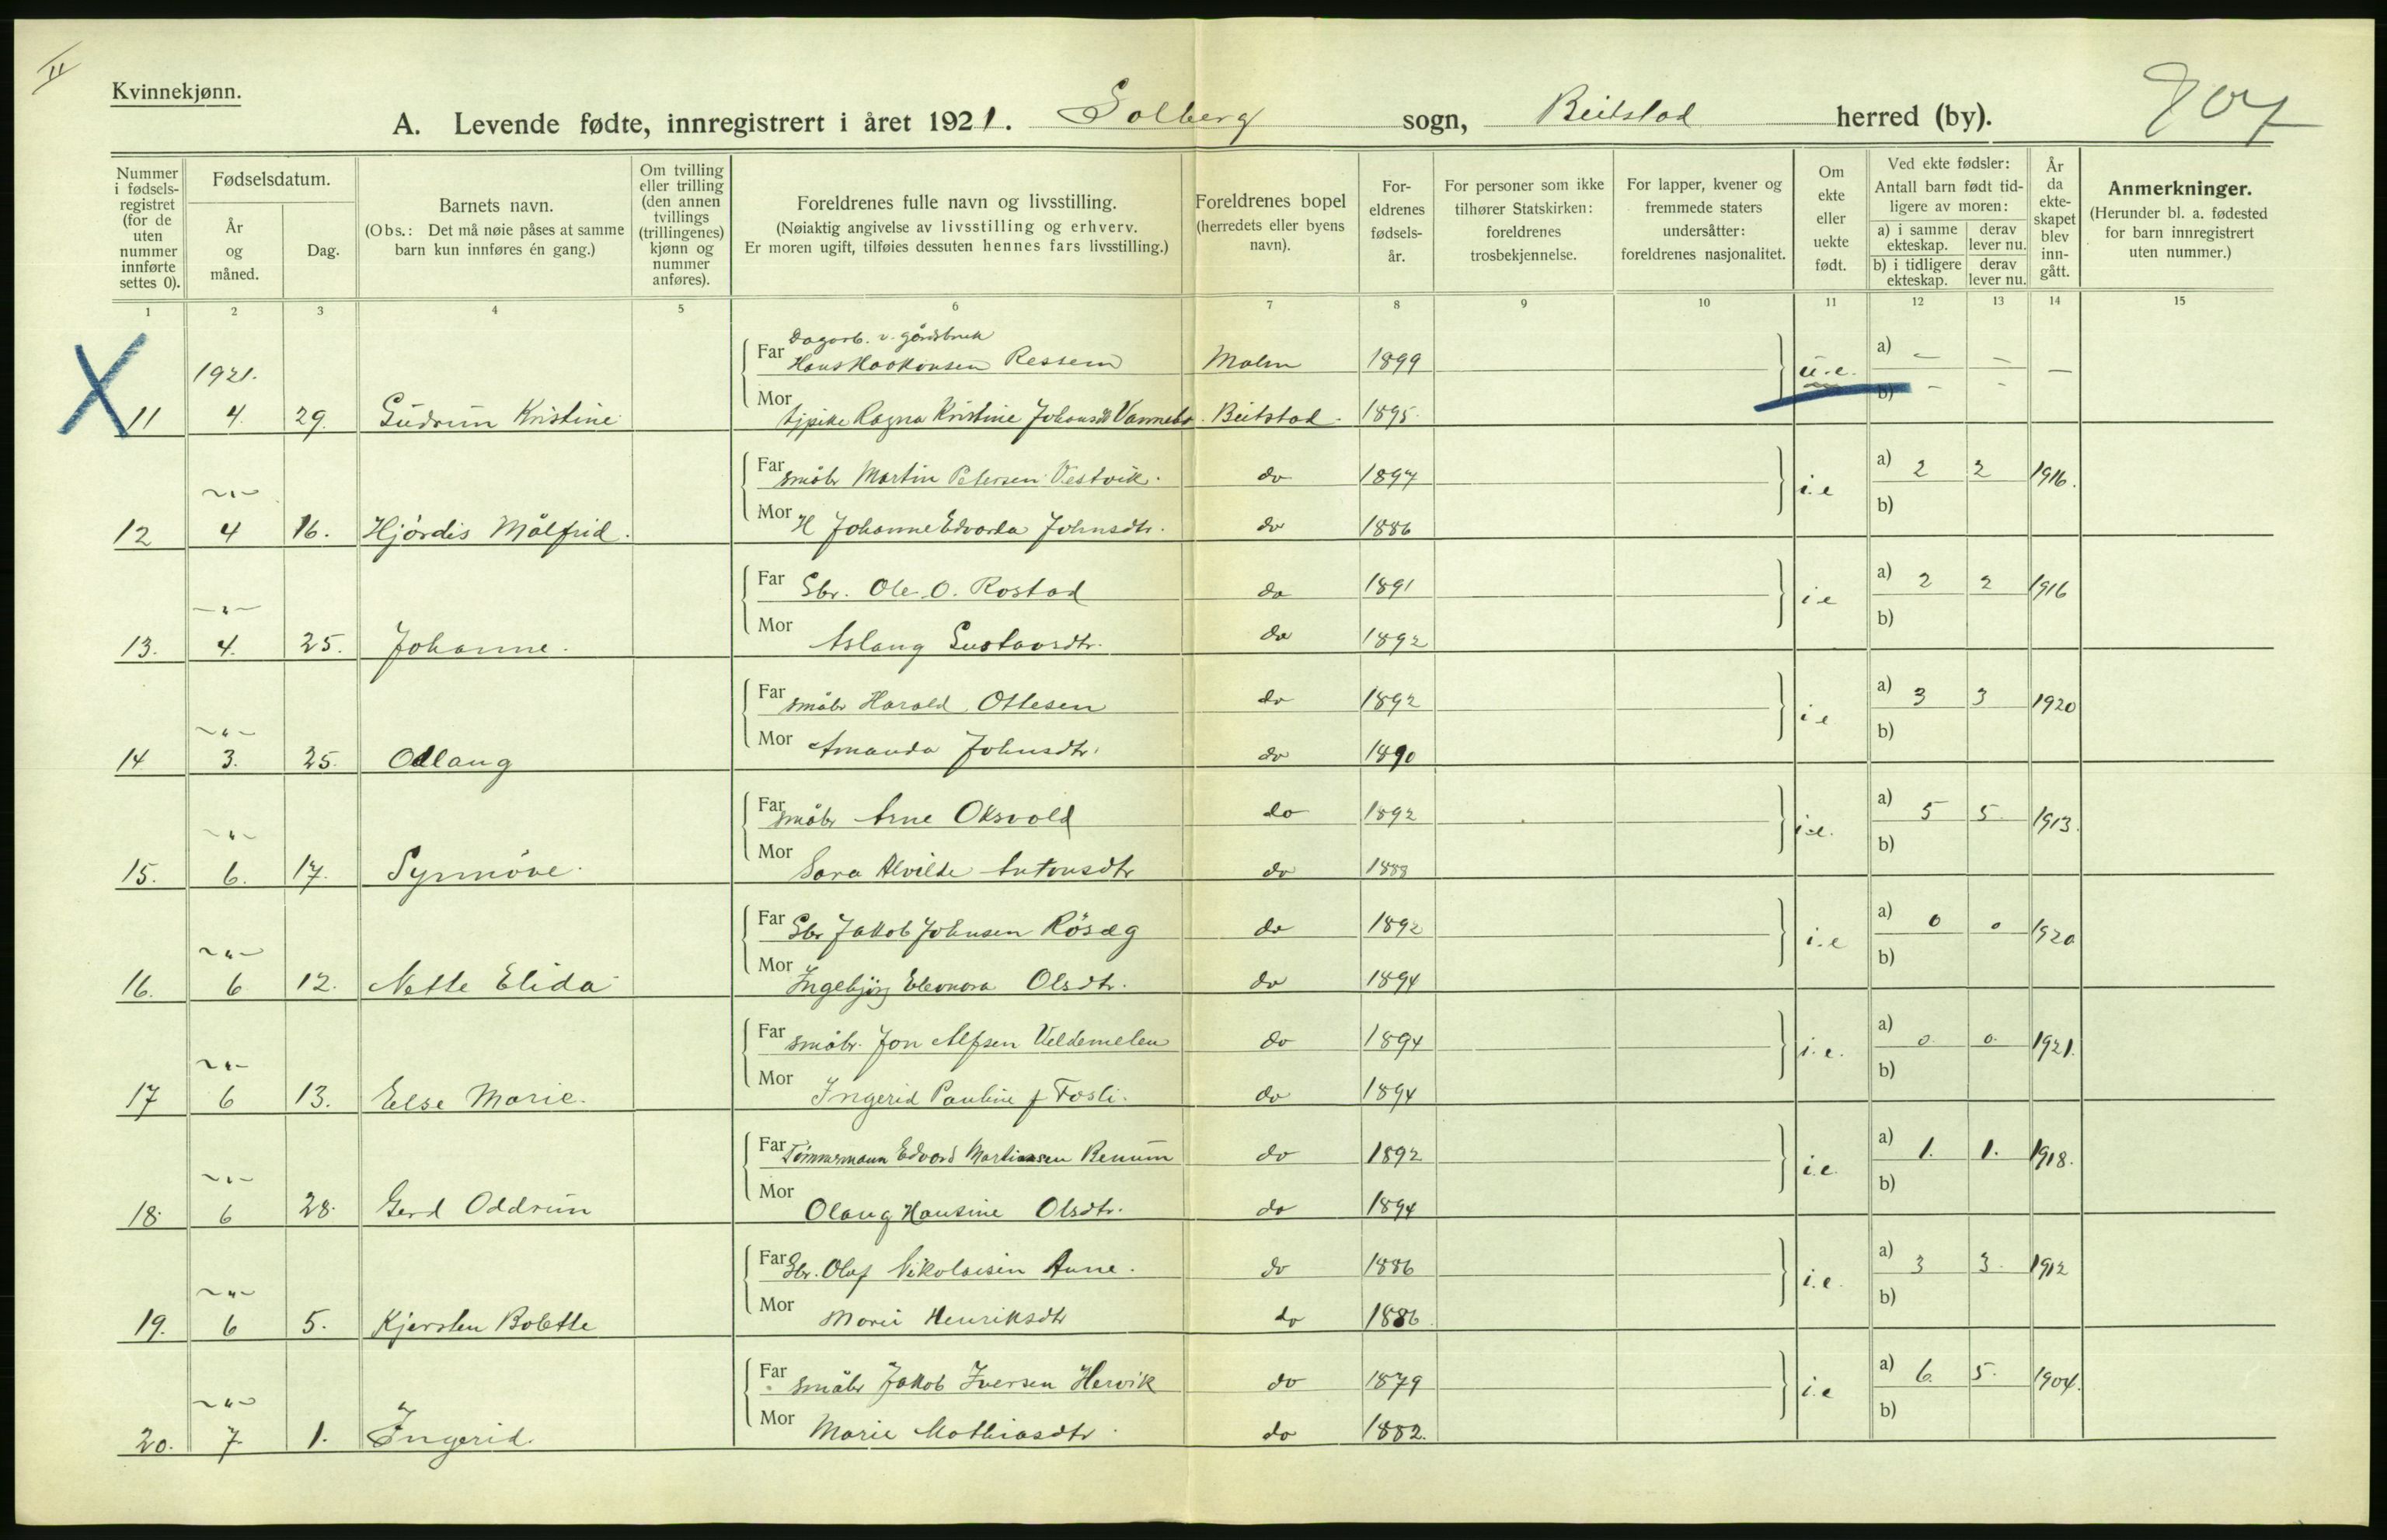 II
Kvinnekjønn.
A. Levende fødte, innregistrert i året 1921. Solberg sogn, Beitstad herred (by).
707
Nummer i fødselsregistret (for de uten nummer innførte settes 0).
Fødselsdatum.
År og måned.
Dag.
Barnets navn.
(Obs.: Det må nøie påses at samme barn kun innføres én gang.)
Om tvilling eller trilling (den annen tvillings (trillingenes) kjønn og nummer anføres).
Foreldrenes fulle navn og livsstilling.
(Nøiaktig angivelse av livsstilling og erhverv.
Er moren ugift, tilføies dessuten hennes fars livsstilling.)
Foreldrenes bopel
(herredets eller byens navn).
Foreldrenes fødselsår.
For personer som ikke tilhører Statskirken: foreldrenes trosbekjennelse.
For lapper, kvener og fremmede staters undersåtter: foreldrenes nasjonalitet.
Om ekte eller uekte født.
Ved ekte fødsler:
Antall barn født tidligere av moren:
a) i samme ekteskap.
derav lever nu.
b) i tidligere ekteskap.
derav lever nu.
År da ekteskapet blev inngått.
Anmerkninger.
(Herunder bl. a. fødested for barn innregistrert uten nummer.)
1 2 3 4 5 6 7 8 9 10 11 12 13 14 15
Dagarb. v. gårdsbruk
1921. Far Hans Haakonsen Ressem Malm 1899 u.e. a) — — —
11 4. 29. Gudrun Kristine Mor tjpike Ragna Kristine Johansdt Vannebo. Beitstad. 1895. b) - -
~"~ Far småbr Martin Petersen Vestvik. do 1897 i.e a) 2 2 1916.
12 4 16. Hjørdis Målfrid. Mor H Johanne Edvarda Johnsdtr. do 1886 b)
—"— Far Gbr. Ole O. Rostad do 1891 i.e a) 2 2 1916
13. 4. 25. Johanne. Mor Aslaug Gustavsdtr. do 1892 b)
~"~ Far småbr Harald Ottesen do 1892 i.e a) 3 3 1920
14 3. 25. Odlaug Mor Amanda Johnsdtr. do 1890 b)
~"~ Far småbr Arne Oksvold do 1892 i.e. a) 5 5. 1913.
15. 6. 17. Synnöve. Mor Sara Alvilde Antonsdtr do 1888 b)
~"~ Far Gbr Jakob Johnsen Rösæg do 1892 i.e a) 0 0 1920
16. 6 12. Nette Elida Mor Ingebjörg Eleonora Olsdtr. do 1894 b)
~"~ Far småbr. Jon Alfsen Veldemelen do 1894 i.e. a) 0 0. 1921.
17 6 13. Else Marie. Mor Ingerid Pauline f Fosli. do 1894 b)
~"~ Far Tömmermann Edvard Martinsen Benum do 1892 i.e. a) 1. 1. 1918.
18. 6 28. Gerd Oddrun Mor Olaug Hansine Olsdtr. do 1894 b)
~"~ Far Gbr. Olaf Nikolaisen Aune. do 1886 i.e. a) 3 3. 1912
19. 6 5. Kjersten Bolette Mor Marie Henriksdtr do 1886. b)
~"~ Far småbr Jakob Iversen Hervik do 1879 i.e a) 6. 5. 1904.
20. 7. 1. Ingerid. Mor Marie Mathiasdtr. do 1882. b)